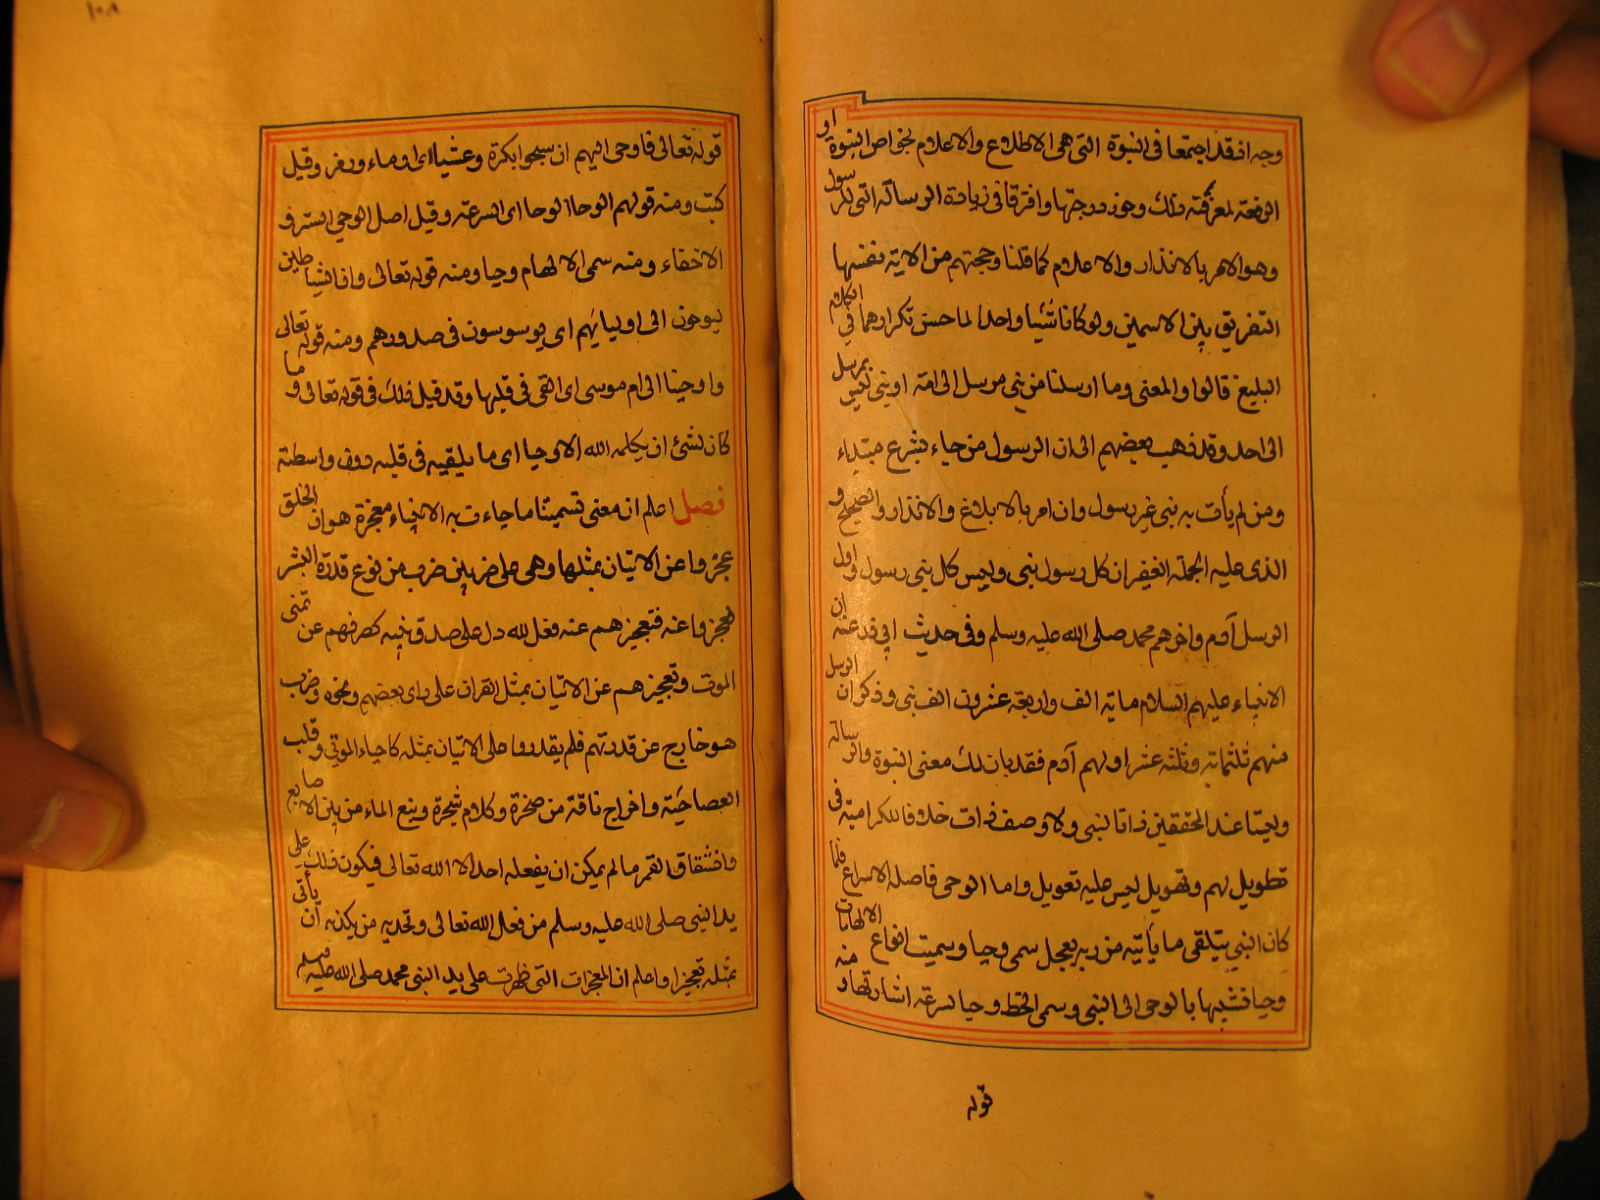 وجه اذ قد اجتمعا فى النبوة التى هى الاطلاع والاعلام بخواص النبوة او
الرفعة لمعرفته ذلك وحوز درجتها وافترقا فى زيادة الرسالة التى للرسول
وهو الامر بالانذار والاعلام كما قلنا وحجتهم من الاية نفسها
التفريق بين الاسمين ولو كانا شيئا واحدا لما حسن تكرارهما فى الكلام
البليغ قالوا والمعنى وما ارسلنا من نبى مرسل الى امة او نبى ليس بمرسل
الى احد وقد ذهب بعضهم الى ان الرسول من جاء بشرع مبتداء
ومن لم يأت به نبى غير رسول وان امر بالابلاغ والانذار والصحيح و
الذى عليه الجملة الغفير ان كل رسول نبى وليس كل نبى رسول واول
الرسل آدم واخرهم محمد صلى الله عليه وسلم وفى حديث ابى ذر عنه ان
الانبياء عليهم السلام ماية الف واربعة عشرون الف نبى وذكر ان الرسل
منهم ثلثماية وثلثة عشر اولهم آدم فقد بان لك معنى النبوة والرسالة
وليستا عند المحققين ذاتا لنبى ولا وصف ذات خلافا للكرامية فى
تطويل لهم وتهويل ليس عليه تعويل واما الوحى فاصله الاسراع فلما
كان النبى يتلقى ما يأتيه من ربه بعجل سمى وحيا وسميت انواع الالهامات
وحيا تشبيها بالوحى الى النبى وسمى الخط وحيا لسرعة اشارتها و منه
قوله
١٠٨
قوله تعالى فاوحى اليهم ان سبحوا بكرة وعشيا اى اوماء ورمز وقيل
كتب ومنه قولهم الوحا الوحا اى السرعة وقيل اصل الوحى السر و
الاخفاء ومنه سمى الالهام وحيا ومنه قوله تعالى وان الشياطين
ليوحون الى اوليايهم اى يوسوسون فى صدورهم ومنه قوله تعالى
واوحينا الى ام موسى اى القى فى قلبها وقد قيل ذلك فى قوله تعالى و ما
كان لبشئ ان يكلمه الله الا وحيا اى ما يلقيه فى قلبه دون واسطة
فصل اعلم ان معنى تسميتنا ما جاءت به الانبياء معجزة هو ان الخلق
عجزوا عن الاتيان بمثلها وهى على ضربين ضرب من نوع قدرة البشر
فعجزوا عنه فتعجيزهم عنه فعل لله دل على صدق نبيه كصرفهم عن تمنى
الموت وتعجيزهم عن الاتيان بمثل القران على راى بعضهم ونحوه وضرب
هو خارج عن قدرتهم فلم يقدروا على الاتيان بمثله كاحياء الموتى وقلب
العصا حية واخراج ناقة من صخرة وكلام شجرة ونبع الماء من بين الاصابع
وانشقاق القمر مما لم يمكن ان يفعله احد الا الله تعالى فيكون ذلك على
يد النبى صلى الله عليه وسلم من فعل الله تعالى وتحديه من يكذبه ان يأتى
بمثله تعجيز واعلم ان المعجزات التى ظهرت على يد النبى محمد صلى الله عليه وسلم